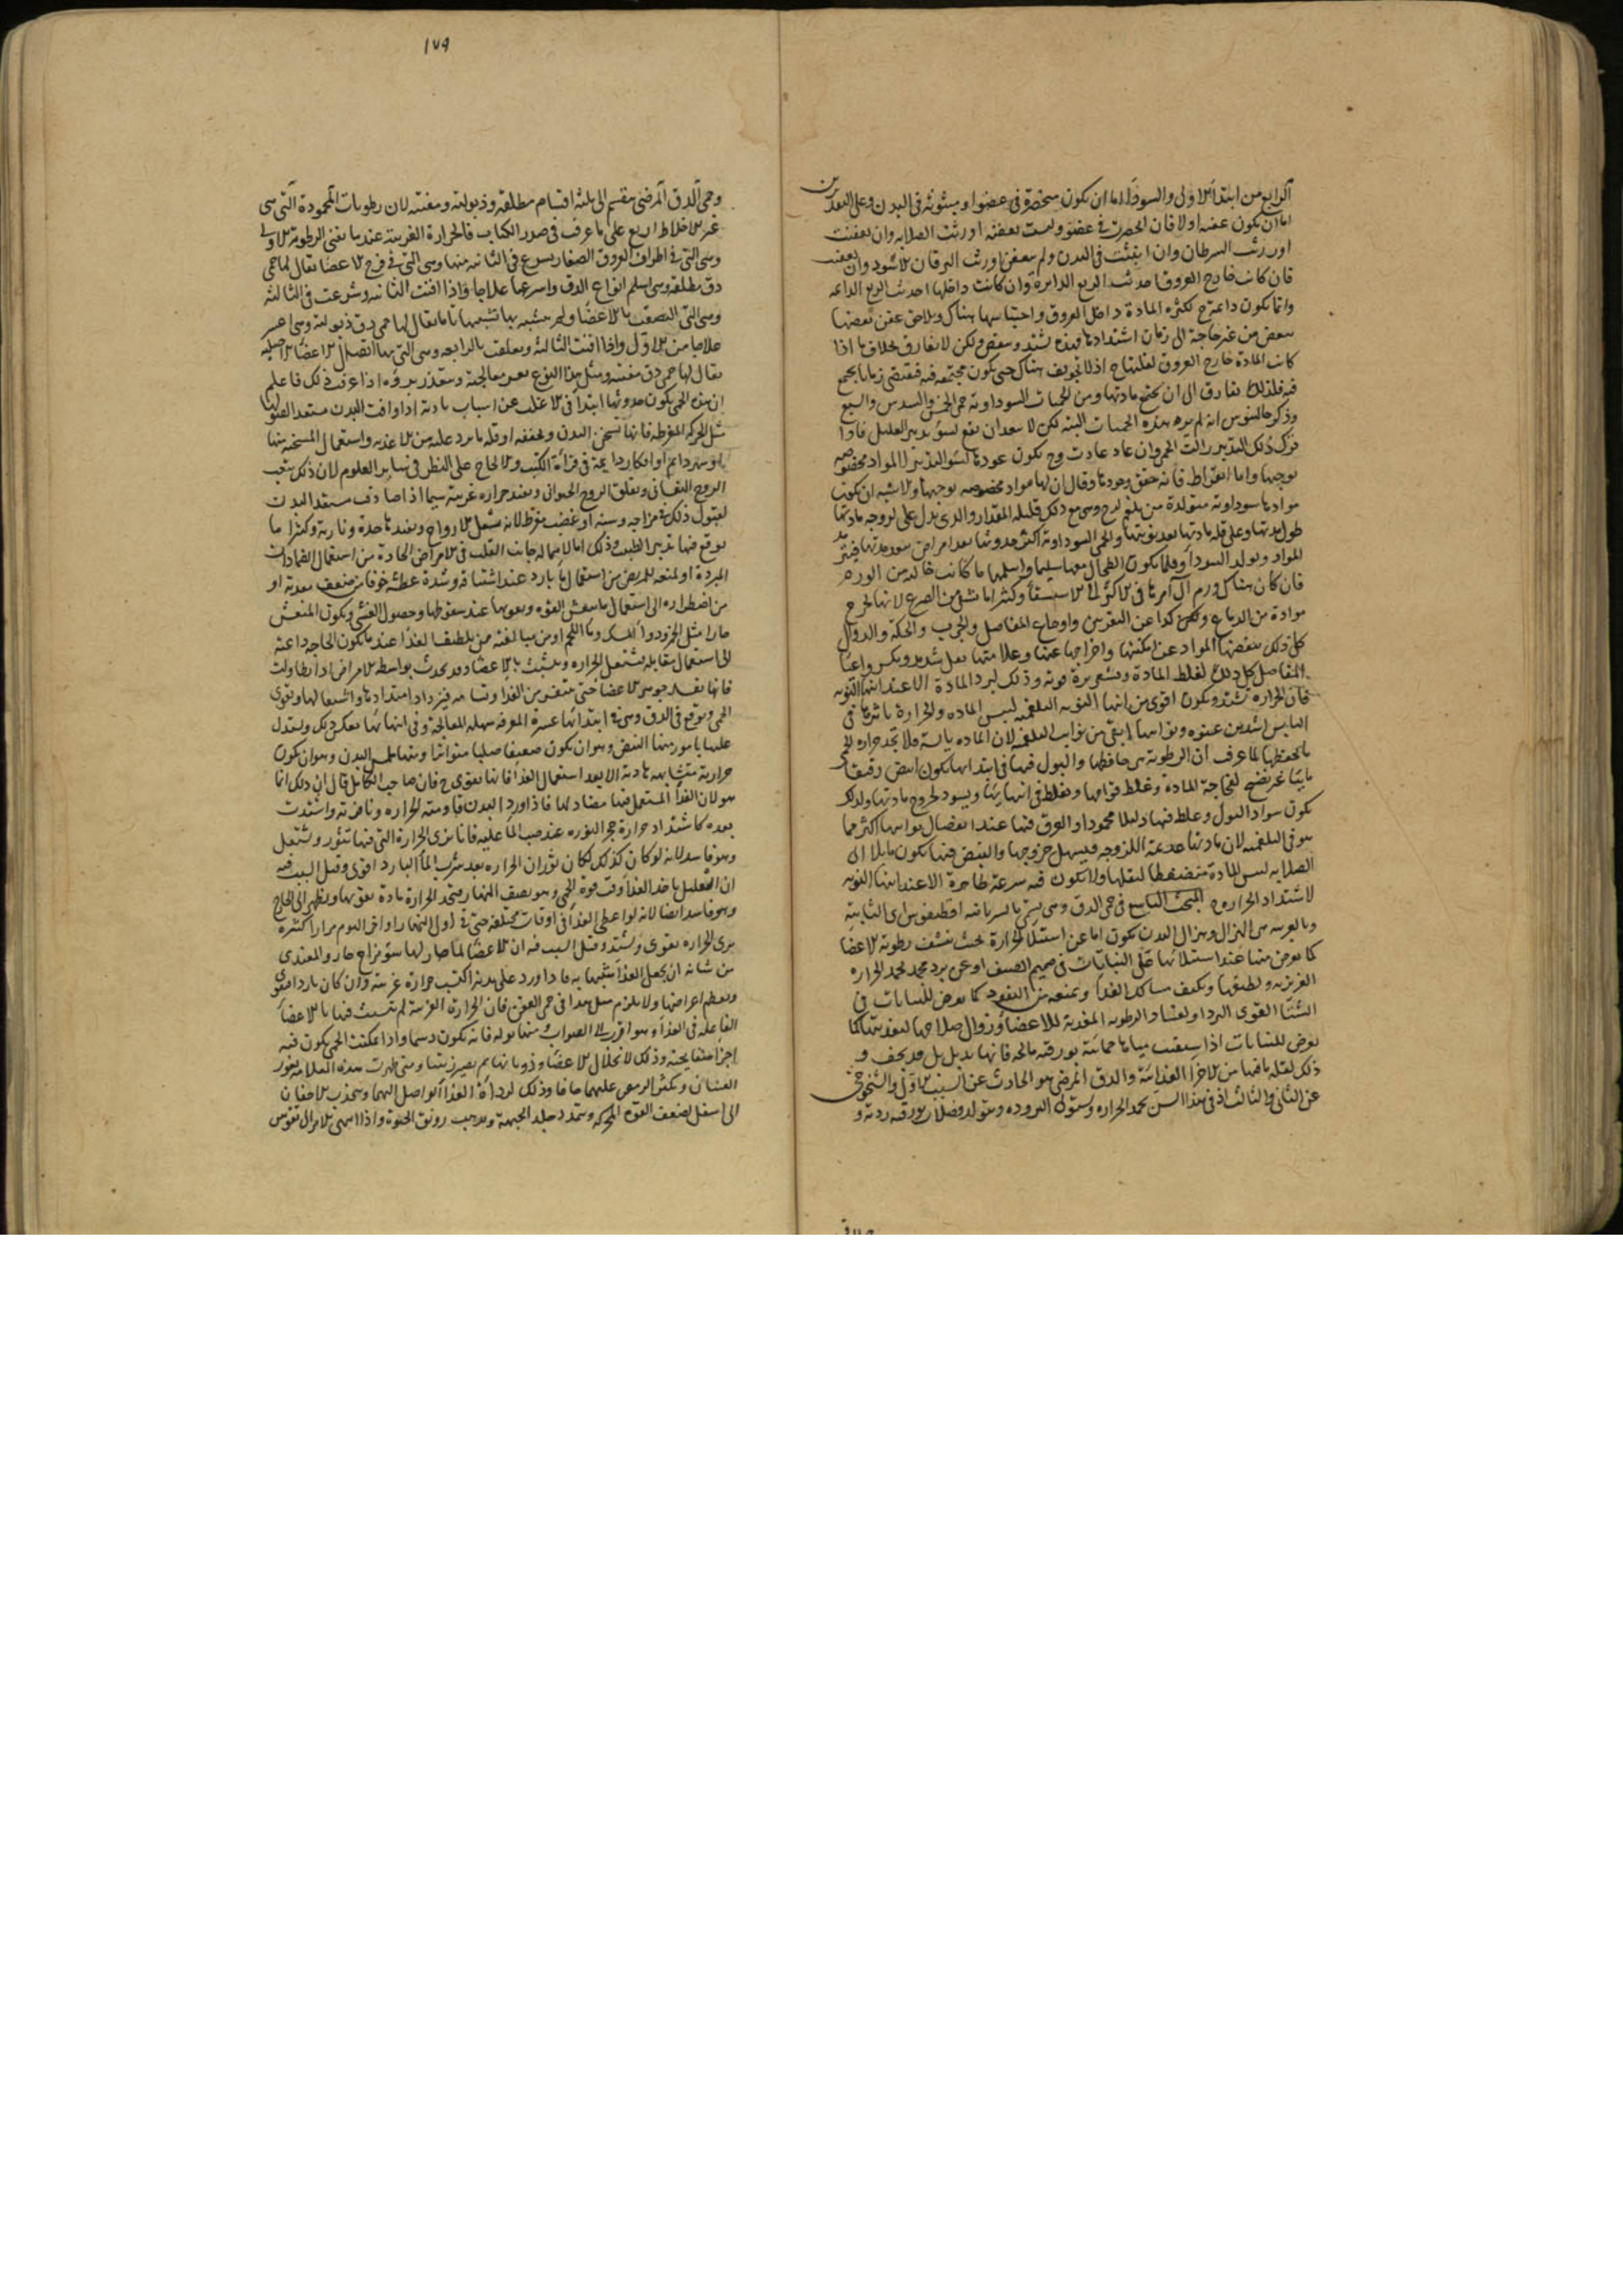 الرابع من ابتدأ الاولى والسودآ اما ان يكون منحصرة فى عضو او مبثوثة فى البدن وعلى التقديرين
اما ان يكون عفنة اولا فان انحصرت فى عضو وليست بعفنة اورثت الصلابه وان تعفنت
اورثت السرطان وان انبثت فى البدن ولم تتعفن اورثت اليرقان الاسود وان تعفنت
فان كانت خارج العروق احدثت الربع الدايرة وان كانت داخلها احدثت الربع الدايمه
وانما يكون دائمة ح لكثرة المادة داخل العروق واحتباسها هناك وتلاحق عفن بعضها
ببعض من غير حاجة الى زمان اشتدادها فهذه تشتد وتنقص ولكن لا تفارق بخلاف ما اذا
كانت المادة خارج العروق لغلبتها ح اذ لا تجويف هناك حتى يكون مجتمعه فيه فيقتضى زمانا يجتمع
فيه فلذلك تفارق الى ان تجتمع مادتها ومن الحميات السوداوية حمى الخمس والسدس والسبع
وذكر جالينوس انه لم ير هذه الحميات البتة لكن لا يبعد ان يقع لسؤ تدبير العليل فاذا
ترك ذلك التدبير زالت الحمى وان عاد عادت وح يكون عودها لسؤ التدبير لا لمواد مخصوصه
توجبها واما ابقراط فانه حقق وجودها وقال ان لها مواد مخصوصه توجبها والاشبه ان يكون
موادها سوداوية متولدة من بلغم لزج وهى مع ذلك قليلة المقدار والذى يدل على لزوجه مادتها
طول مدتها وعلى قلة مادتها بعد نوبتها والحمى السوداوية اكثر حدوثها بعد امراض
المواد وتولد السودآ وقلما يكون الطحال معها سليما واسلمها ما كانت خاليه من الورم
فان كان هناك ورم آل امرها فى الاكثر الى الاستسقآ وكثيرا ما تشفى من الصرع لانها تخرج
موادة من الدماغ وكذا عن النقرس واوجاع المفاصل والجرب والحكة والدوالى
كل ذلك بنفضها المواد عن امكنتها واخراجها عنها وعلامتها ثقل شديد وتكسر واعيا
المفاصل كل ذلك لغلظ المادة وقشعريرة قوية وذلك لبرد المادة الا عند انتهآ النوبه
فان الحرارة تشتد ويكون اقوى من انتهآ النوبه البلغميه ليبس المادة والحرارة تاثيرها فى
اليابس اشد من غيره ونوايبها ابقى من نوايب البلغميه لان المادة يابسة ولا تجد حرارة الحمى
ما يحفظها لما عرف ان الرطوبة هى حافظها والبول فيها فى ابتدايها يكون ابيض رقيقا
مايئا غير نضيج لفجاجة المادة وغلظ قوامها ويغلظ فى انتهايها ويسود لخروج مادتها ولذلك
يكون سواد البول وغلظه فيها دليلا محمودا والعرق فيها عند انفصال نوايبها اكثر مما
هو فى البلغميه لان مادتها عديمة اللزوجه فيسهل خروجها والنبض فيها يكون مايلا الى
الصلابه ليبس المادة منضغطا لثقلها ولا يكون فيه سرعة ظاهرة الا عند انتهآ النوبه
لاشتداد الحرارة ح المبحث التاسع فى حمى الدق وهى تسمى بالسريانية افطيقوس اى الثابتة
وبالعربية هى الهزال وهزال البدن يكون اما عن استيلآ الحرارة بحيث تنشف رطوبة الاعضا
كما يعرض منها عند استيلائها على النباتات فى صميم الصيف او عن برد مجمد يخمد الحرارة
الغريزية ويطفيها ويكثف مسالك الغذآ ويمنعه من النفوذ كما يعرض للنباتات فى
الشتا القوى البرد او لفساد الرطوبه المغذية للاعضآ وزوال صلاحها لتغذيتها كما
يعرض للنباتات اذا سقيت مياها حمائية بورقيه مالحه فانها تذبل بل قد تجف و
ذلك لقلة ما فيها من الاجزآ الغذائية والدق المرضى هو الحادث عن السبب الاول والشيخوخى
عن الثانى والثالث اذ فى هذا السن تخمد الحرارة وتستولى البرودة ويتولد فضلات بورقيه ردية و
١٧٩
وحمى الدق المرضى تنقسم الى ثلثة اقسام مطلقة وذبولية ومفتتة لان رطوبات المحمودة التى هى
غير الاخلاط اربع على ما عرف فى صدر الكتاب فالحرارة الغريبة عندما تفنى الرطوبة الاولى
وهى التى فى اطراف العروق الصغار وتسرع فى الثانيه منها وهى التى فى فرج الاعضآ يقال لها حمى
دق مطلقة وهى اسلم انواع الدق واسرعها علاجا واذا افنت الثانيه وشرعت فى الثالثة
وهى التى التصقت بالاعضآ ولم تتشبه بها تشبيها تاما يقال لها حمى دق ذبولية وهى اعسر
علاجا من الاول واذا افنت الثالثة وتعلقت بالرابعه وهى التى بها اتصال الاعضآ الاصليه
يقال لها حمى دق مفتته ومثل هذا النوع يعسر معالجته ويتعذر برؤه اذا عرفت ذلك فاعلم
ان هذه الحمى يكون حدوثها ابتدآ فى الاغلب عن اسباب بادية اذا وافت البدن مستعدا لقبولها
مثل الحركة المفرطة فانها تسخن البدن وتجففه او قلة ما يرد عليه من الاغذيه واستعمال المسخنة منها
او سهر دايم او افكار دايمة فى قرآة الكتب والالحاح على النظر فى ساير العلوم لان ذلك يتعب
الروح النفسانى ويقلق الروح الحيوانى ويفيد حرارة غريبة سيما اذا صادف مستعد البدن
لقبول ذلك فى مزاجه وسنه او غضب مفرط لانه يشعل الارواح ويفيدها حدة ونارية وكثيرا ما
يوقع فيها تدبير الطبيب وذلك اما لاهماله جانب القلب فى الامراض الحادة من استعمال الضمادات
المبردة او لمنعه للمريض من استعمال مآ بارد عند اشتياقه وشدة عطشه خوفا من ضعف معدته او
من اضطراره الى استعمال ما ينعش القوه ويقويها عند سقوطها وحصول الغشى ويكون المنعش
حارا مثل الخمر ودوآ المسك ومآ اللحم او من مبالغته فى تلطيف الغذآ عندما يكون الحاجه داعية
الى استعمال مقابله فتشتعل الحرارة وتتشبث بالاعضآ وقد يحدث بواسطه الامراض اذا طاولت
الحمى ويوقع فى الدق وهى فى ابتدائها عسرة المعرفه سهلة المعالجة وفى انتهائها بعكس ذلك ويستدل
عليها بامور منها النبض وهو ان يكون ضعيفا صلبا متواترا ومنها ملمس البدن وهو ان يكون
حرارته متشابهه هادية الا بعد استعمال الغذآ فانها تقوى ح فان صاحب الكامل قال ان ذلك انما
هو لان الغذآ المستعمل فيها مضاد لها فاذا ورد البدن قاومته الحرارة ونافرته واشتدت
بعده كاشتداد حرارة حجر النورة عند صب المآ عليه فانا نرى الحرارة التى فيها تثور وتشتعل
وهو فاسد لانه لو كان كذلك لكان ثوران الحرارة بعد شرب المآ البارد اقوى وقيل السبب فيه
ان العليل ياخذ الغذآ وقت قوة الحمى وهو نصف النهار فتجد الحرارة مادة تقويها وتظهر الى الخارج
وهو فاسد ايضا لانه لو اعطى الغذآ فى اوقات مختلفة حتى فى اول النهار او اخر اليوم مرارا كثيرة
يرى الحرارة تقوى وتشتد وقيل السبب فيه ان الاعضآ لما صار لها سؤ مزاج حار والمغتذى
من شانه ان يجعل الغذآ شبيها به فاذا ورد على بدنه اكتسب حرارة غريبة وان كان باردا فتقوى
وتعظم اعراضها ولا يلزم مثل هذا فى حمى العفن فان الحرارة الغريبة لم تتشبث فيها بالاعضآ
الفاعلة فى الغذآ وهو اقرب الى الصواب ومنها بوله فانه يكون دسما واذا تمكنت الحمى يكون فيه
اجزآ صفايحية وذلك لانحلال الاعضآ وذوبانها ثم يصير زيتيا ومتى ظهرت هذه العلامة تغور
العينان ويكثر الرمص عليهما جافا وذلك لردآة الغذآ الواصل اليهما وتنجذب الاجفان
الى اسفل لضعف القوة المحركه وتتمدد جلد الجبهة ويذهب رونق الحيوة واذا انتهى الامر الى تقوس